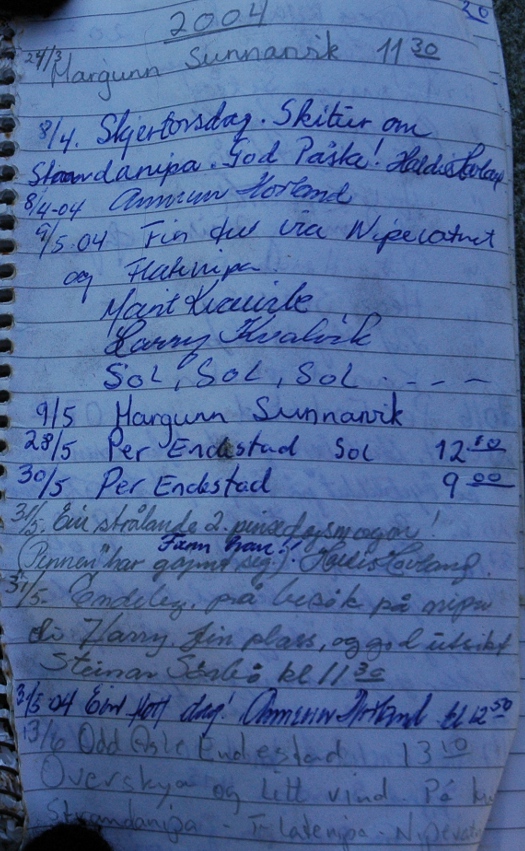 30
2004
24/3
Margunn Sunnanvik 11 30
8/4. Skjertorsdag. Skitur om
Strandanipa. God Påske! Haldis Hovland
8/4-04 Annrun Hovland
9/5-04 Fin tur via Nipevatnet
og Flatenipa.
Marit Kvavik
Harry Kvalvik
SOL, SOL, SOL - - - -
9/5 Margunn Sunnanvik
28/5 Per Endestad Sol 12 10
30/5 Per Endestad 9 00
31/5. Ein strålande 2. pinsedagsmorgon!
Fann han!
(Pinnen" har gøymt seg.) Haldis Hovland.
31/5. Endeleg på besøk på nipa
di Harry. Fin plass, og god utsikt
Steinar kl 11 30
31/5-04 Ein flott dag! Annrun Hovland kl 12 50
13/6 Odd Asle Endestad 13 10
Overskya og litt vind. På
Strandanipa - Flatenipa - Nipevatn